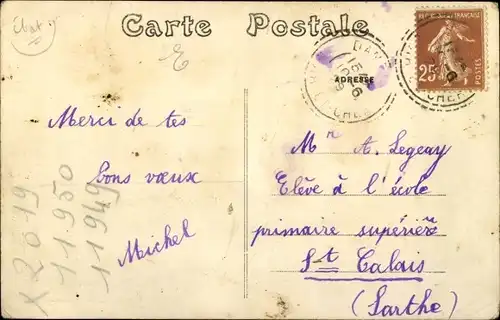 Carte Postale
ADRESSE
25c
POSTES
Merci de tes
bons vœux
Michel
Mr A. Legeay
Elève à l'école
primaire supérieure
St Calais
(Sarthe)
X 2019
11950
11949